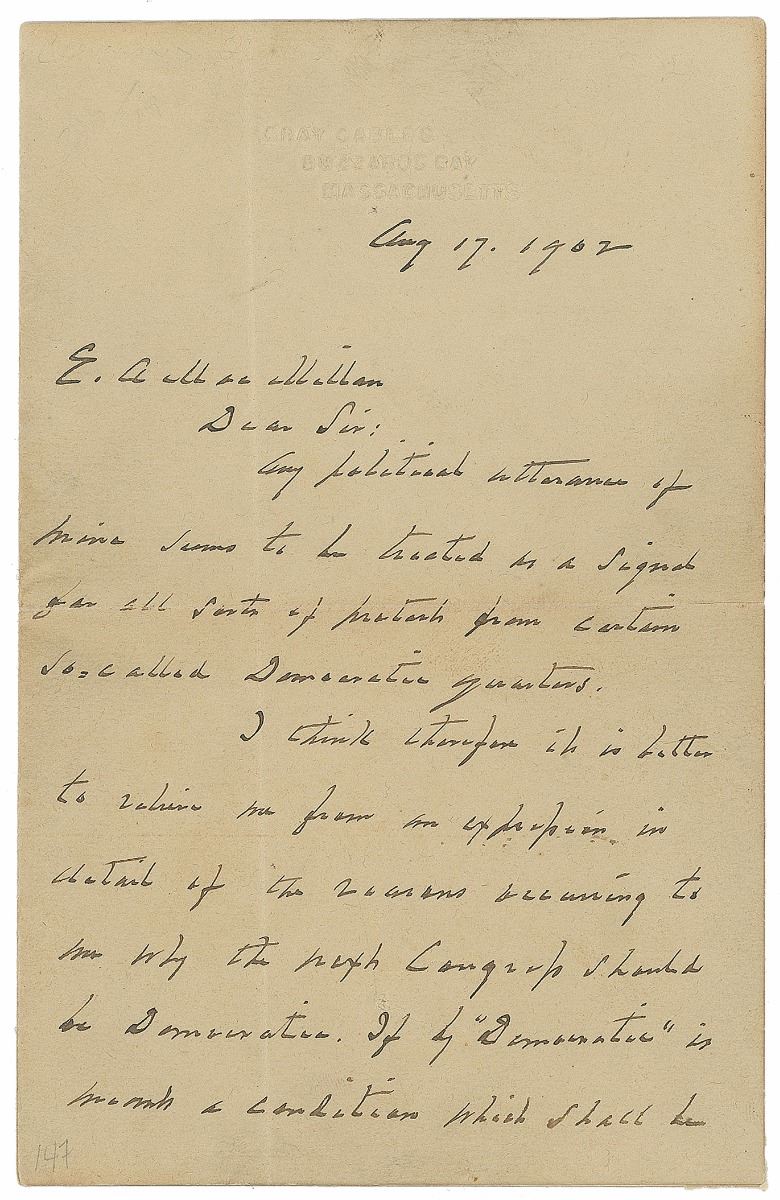 GRAY GABLES
BUZZARDS BAY
MASSACHUSETTS
Aug 17. 1902
E. A MacMillan
Dear Sir:
Any political utterance of
mine seems to be treated as a signal
for all sorts of protests from certain
so-called Democratic quarters.
I think therefore it is better
to relieve me from an expression in
detail of the reasons occurring to
me why the next Congress should
be Democratic. If by "Democratic" is
meant a condition which shall be
147